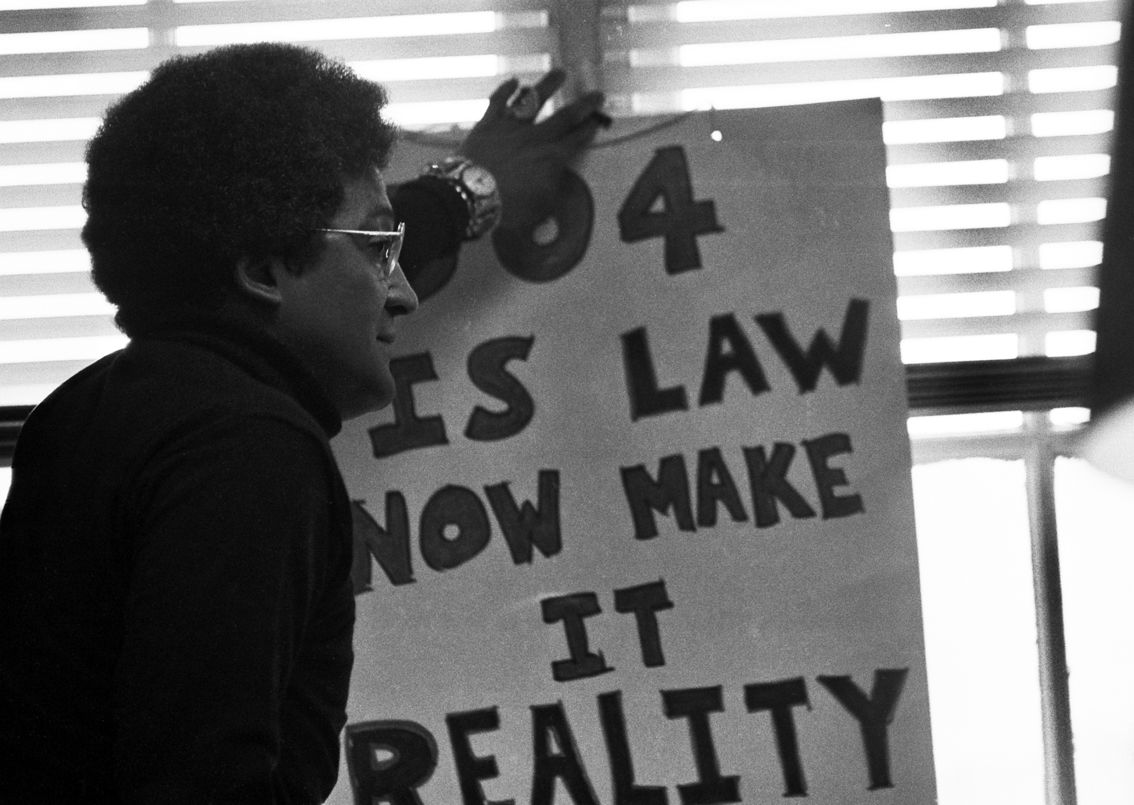 04
IS LAW
NOW MAKE
IT
REALITY